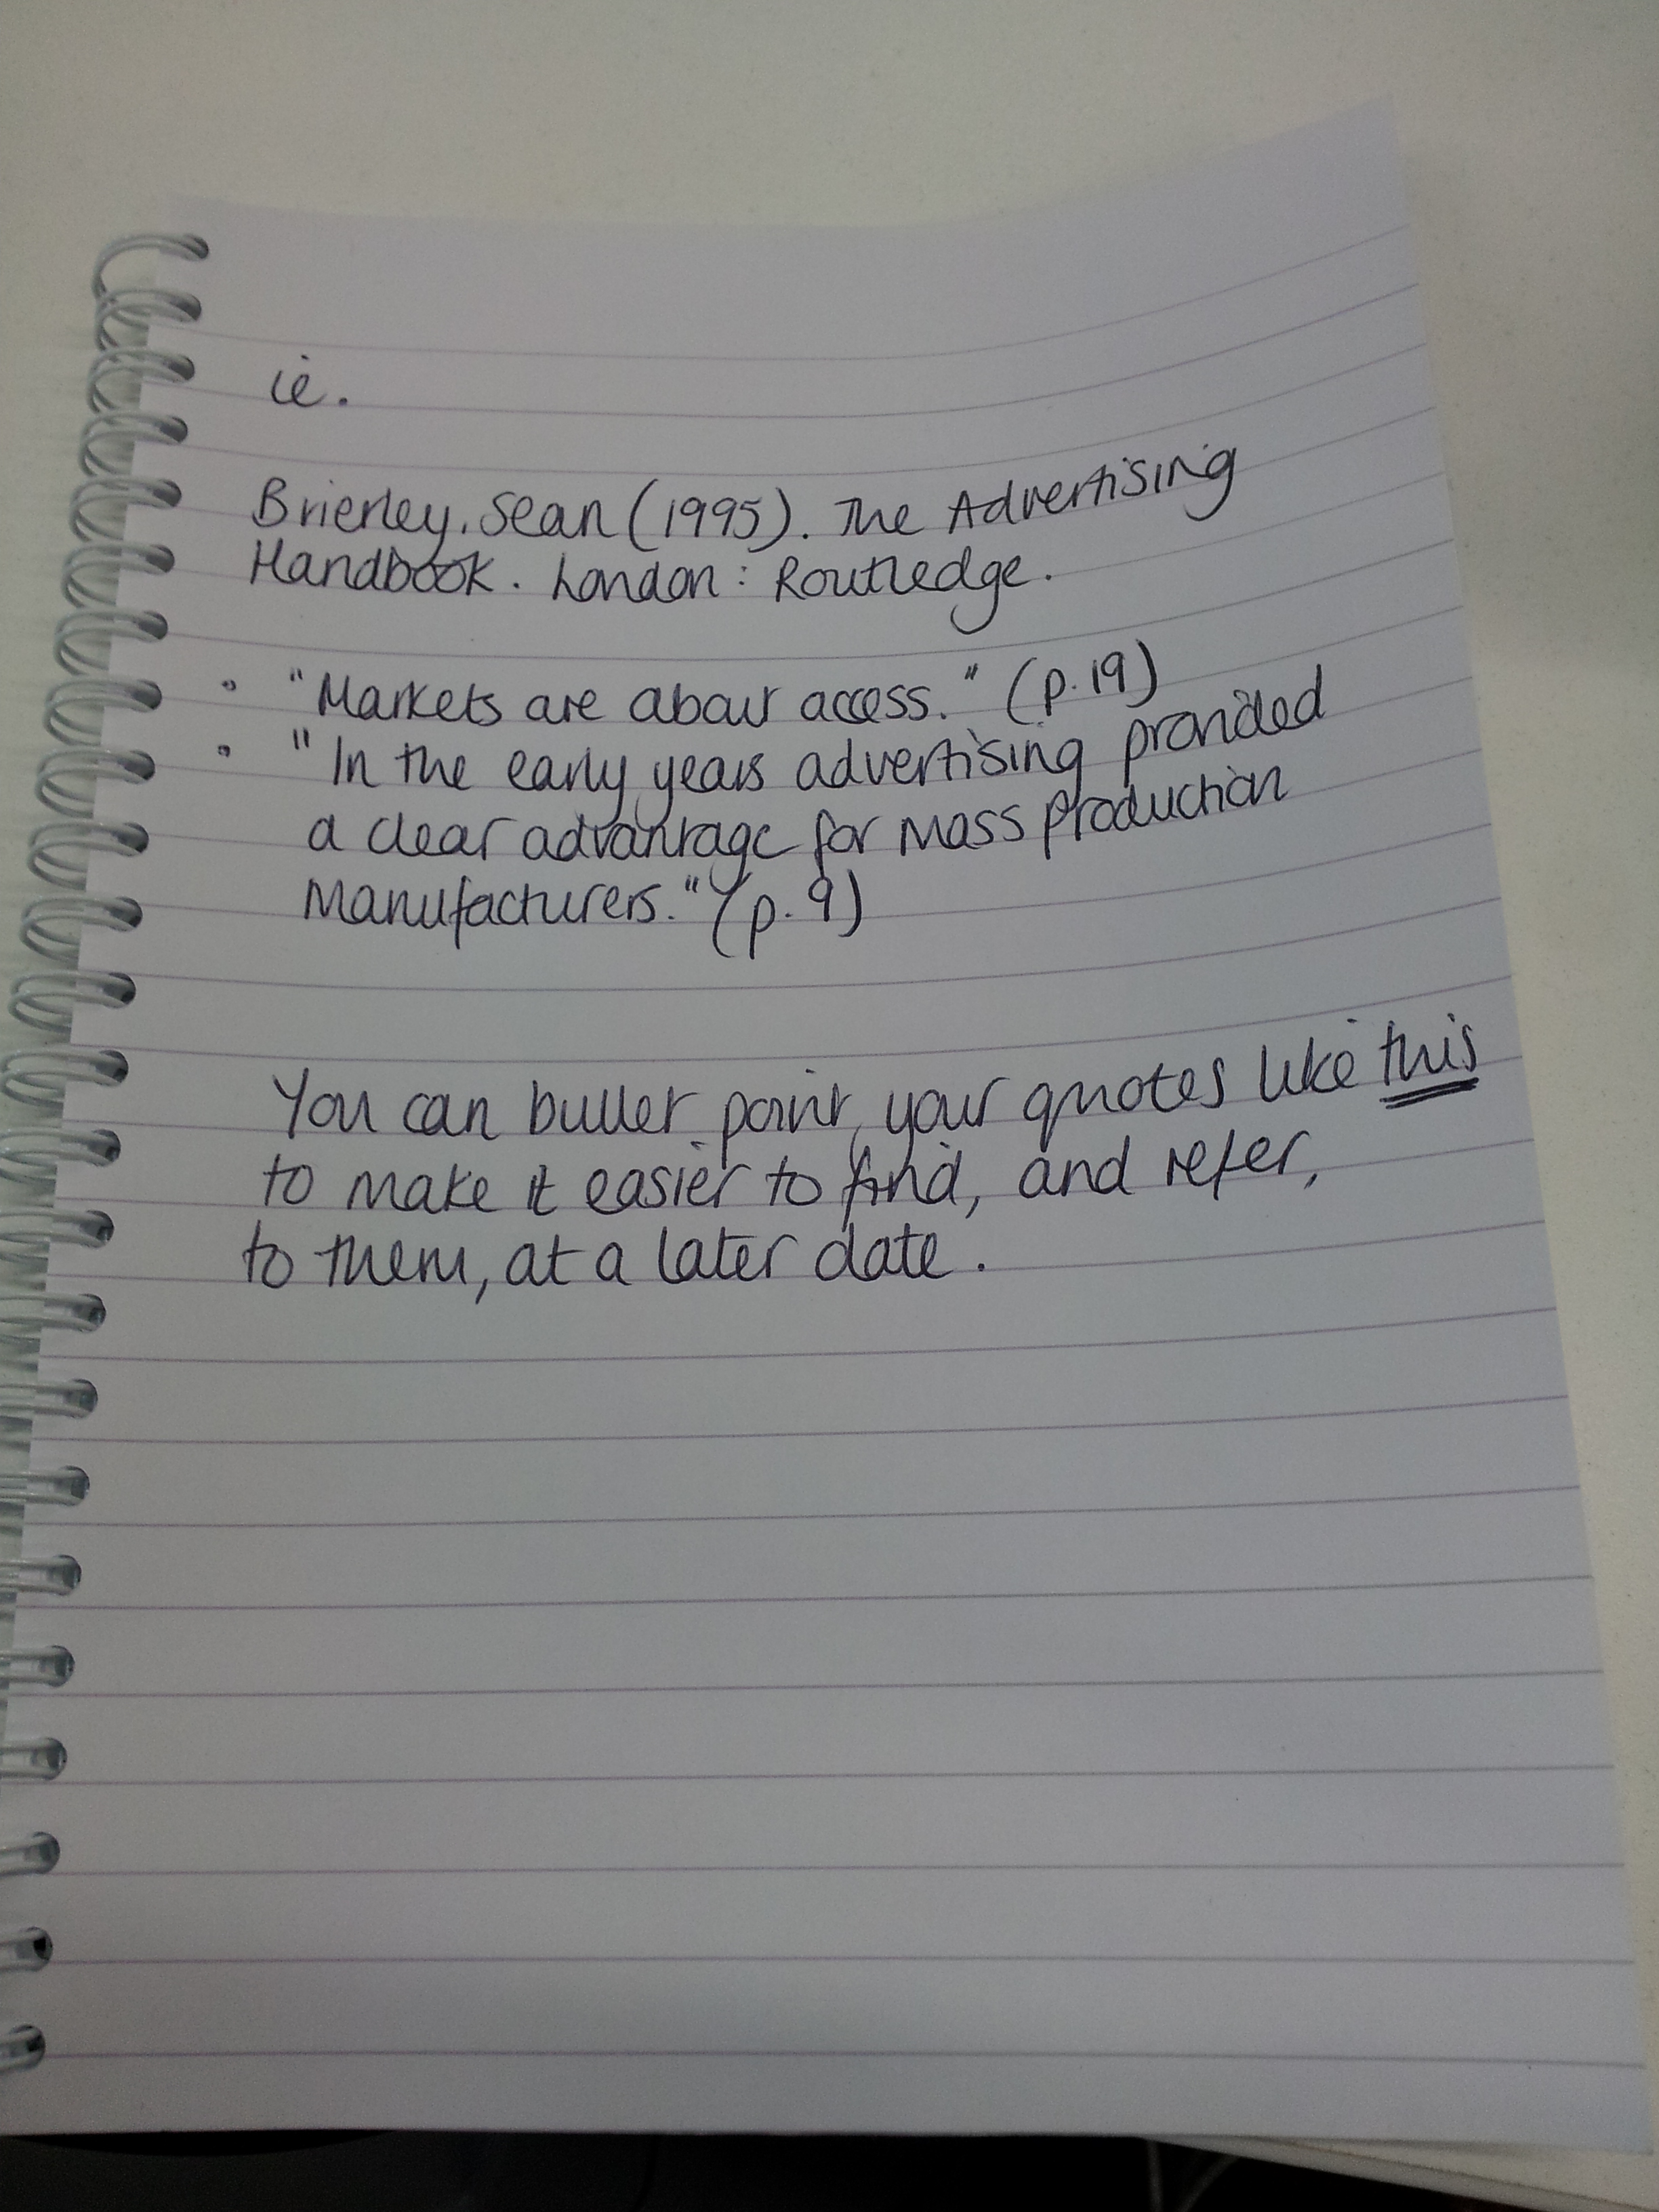 ie.
Brierley, Sean (1995). The Advertising
Handbook. London: Routledge.
• "Markets are about access." (p.19)
• "In the early years advertising provided
a clear advantage for mass production
manufacturers." (p.9)
You can bullet point your quotes like this
to make it easier to find, and refer,
to them, at a later date.